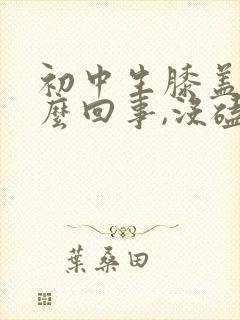 初中生膝盖
麼回事,没磕
葉桑田